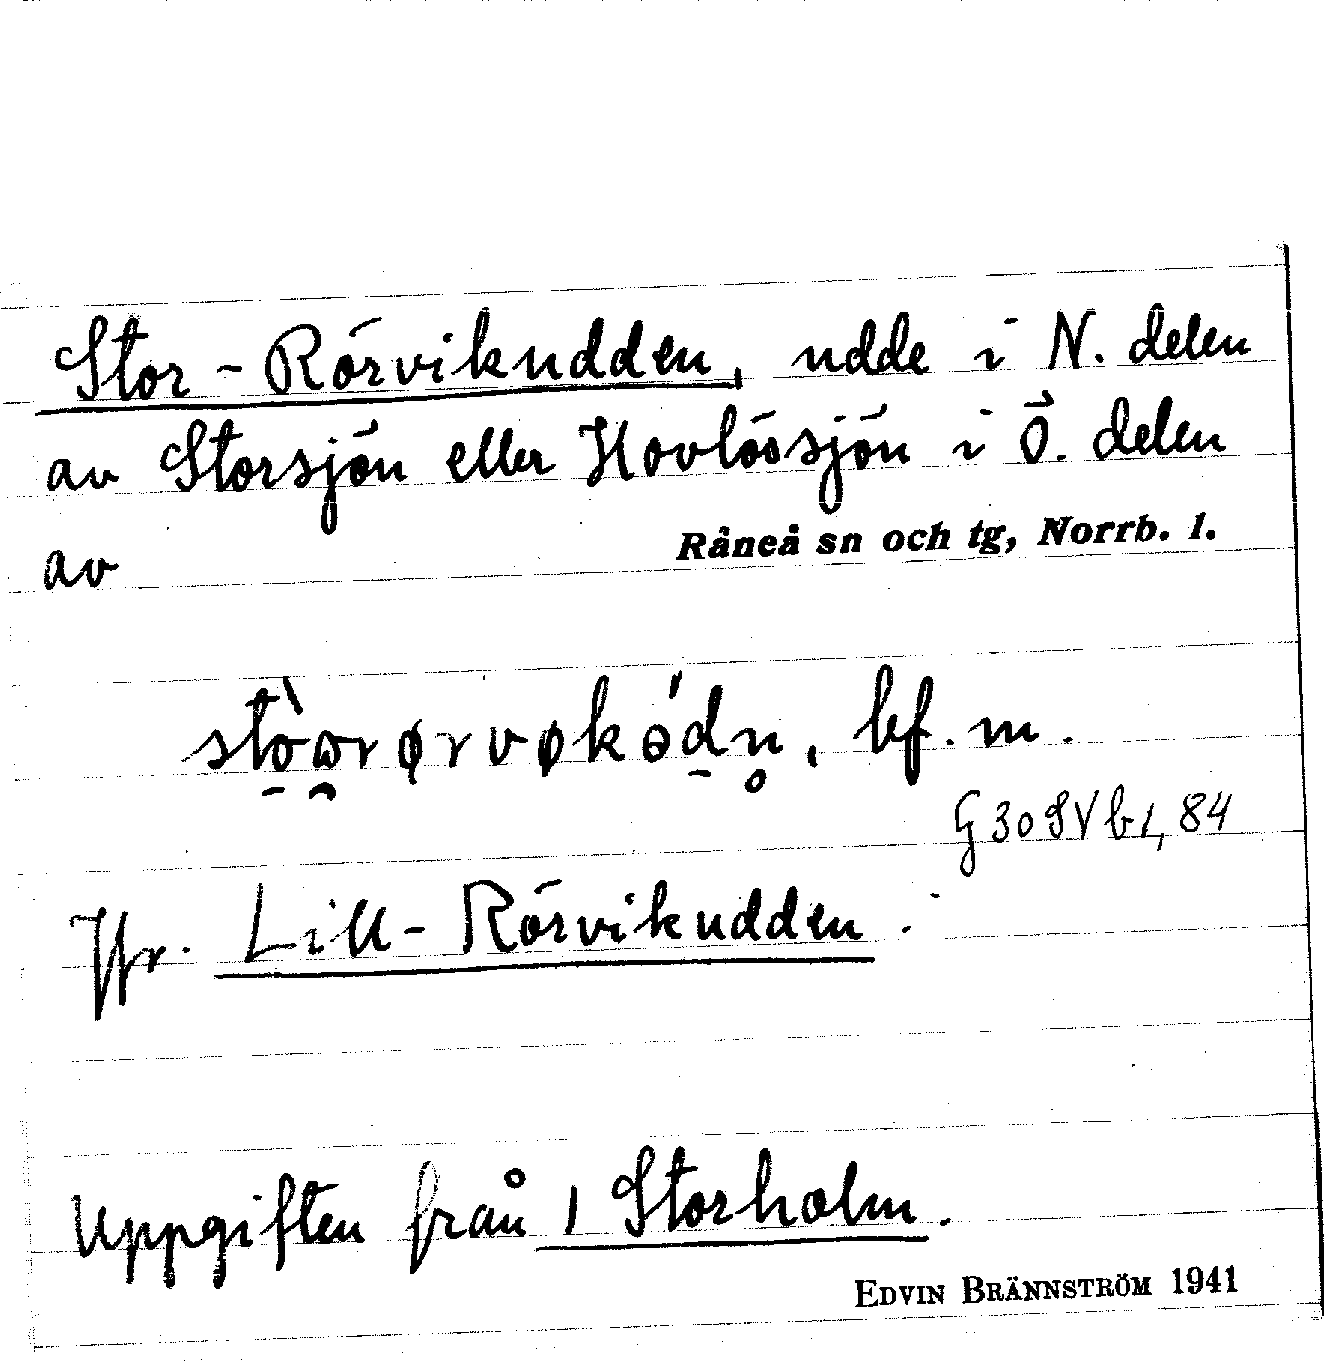 Stor-Rörvikudden, udde i N. delen
av Storsjön eller Hovlössjön i Ö. delen
av Råneå sn och tg, Norrb. l.
bf. m.
G 30 SV b 1, 84
Jfr. Lill-Rörvikudden.
Uppgiften från 1 Storholm.
EDVIN BRÄNNSTRÖM 1941